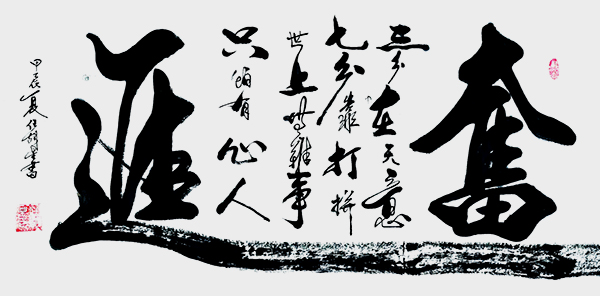 奮
三分在天意
七分靠打拼
世上無難事
只怕有心人
進
甲辰夏
書